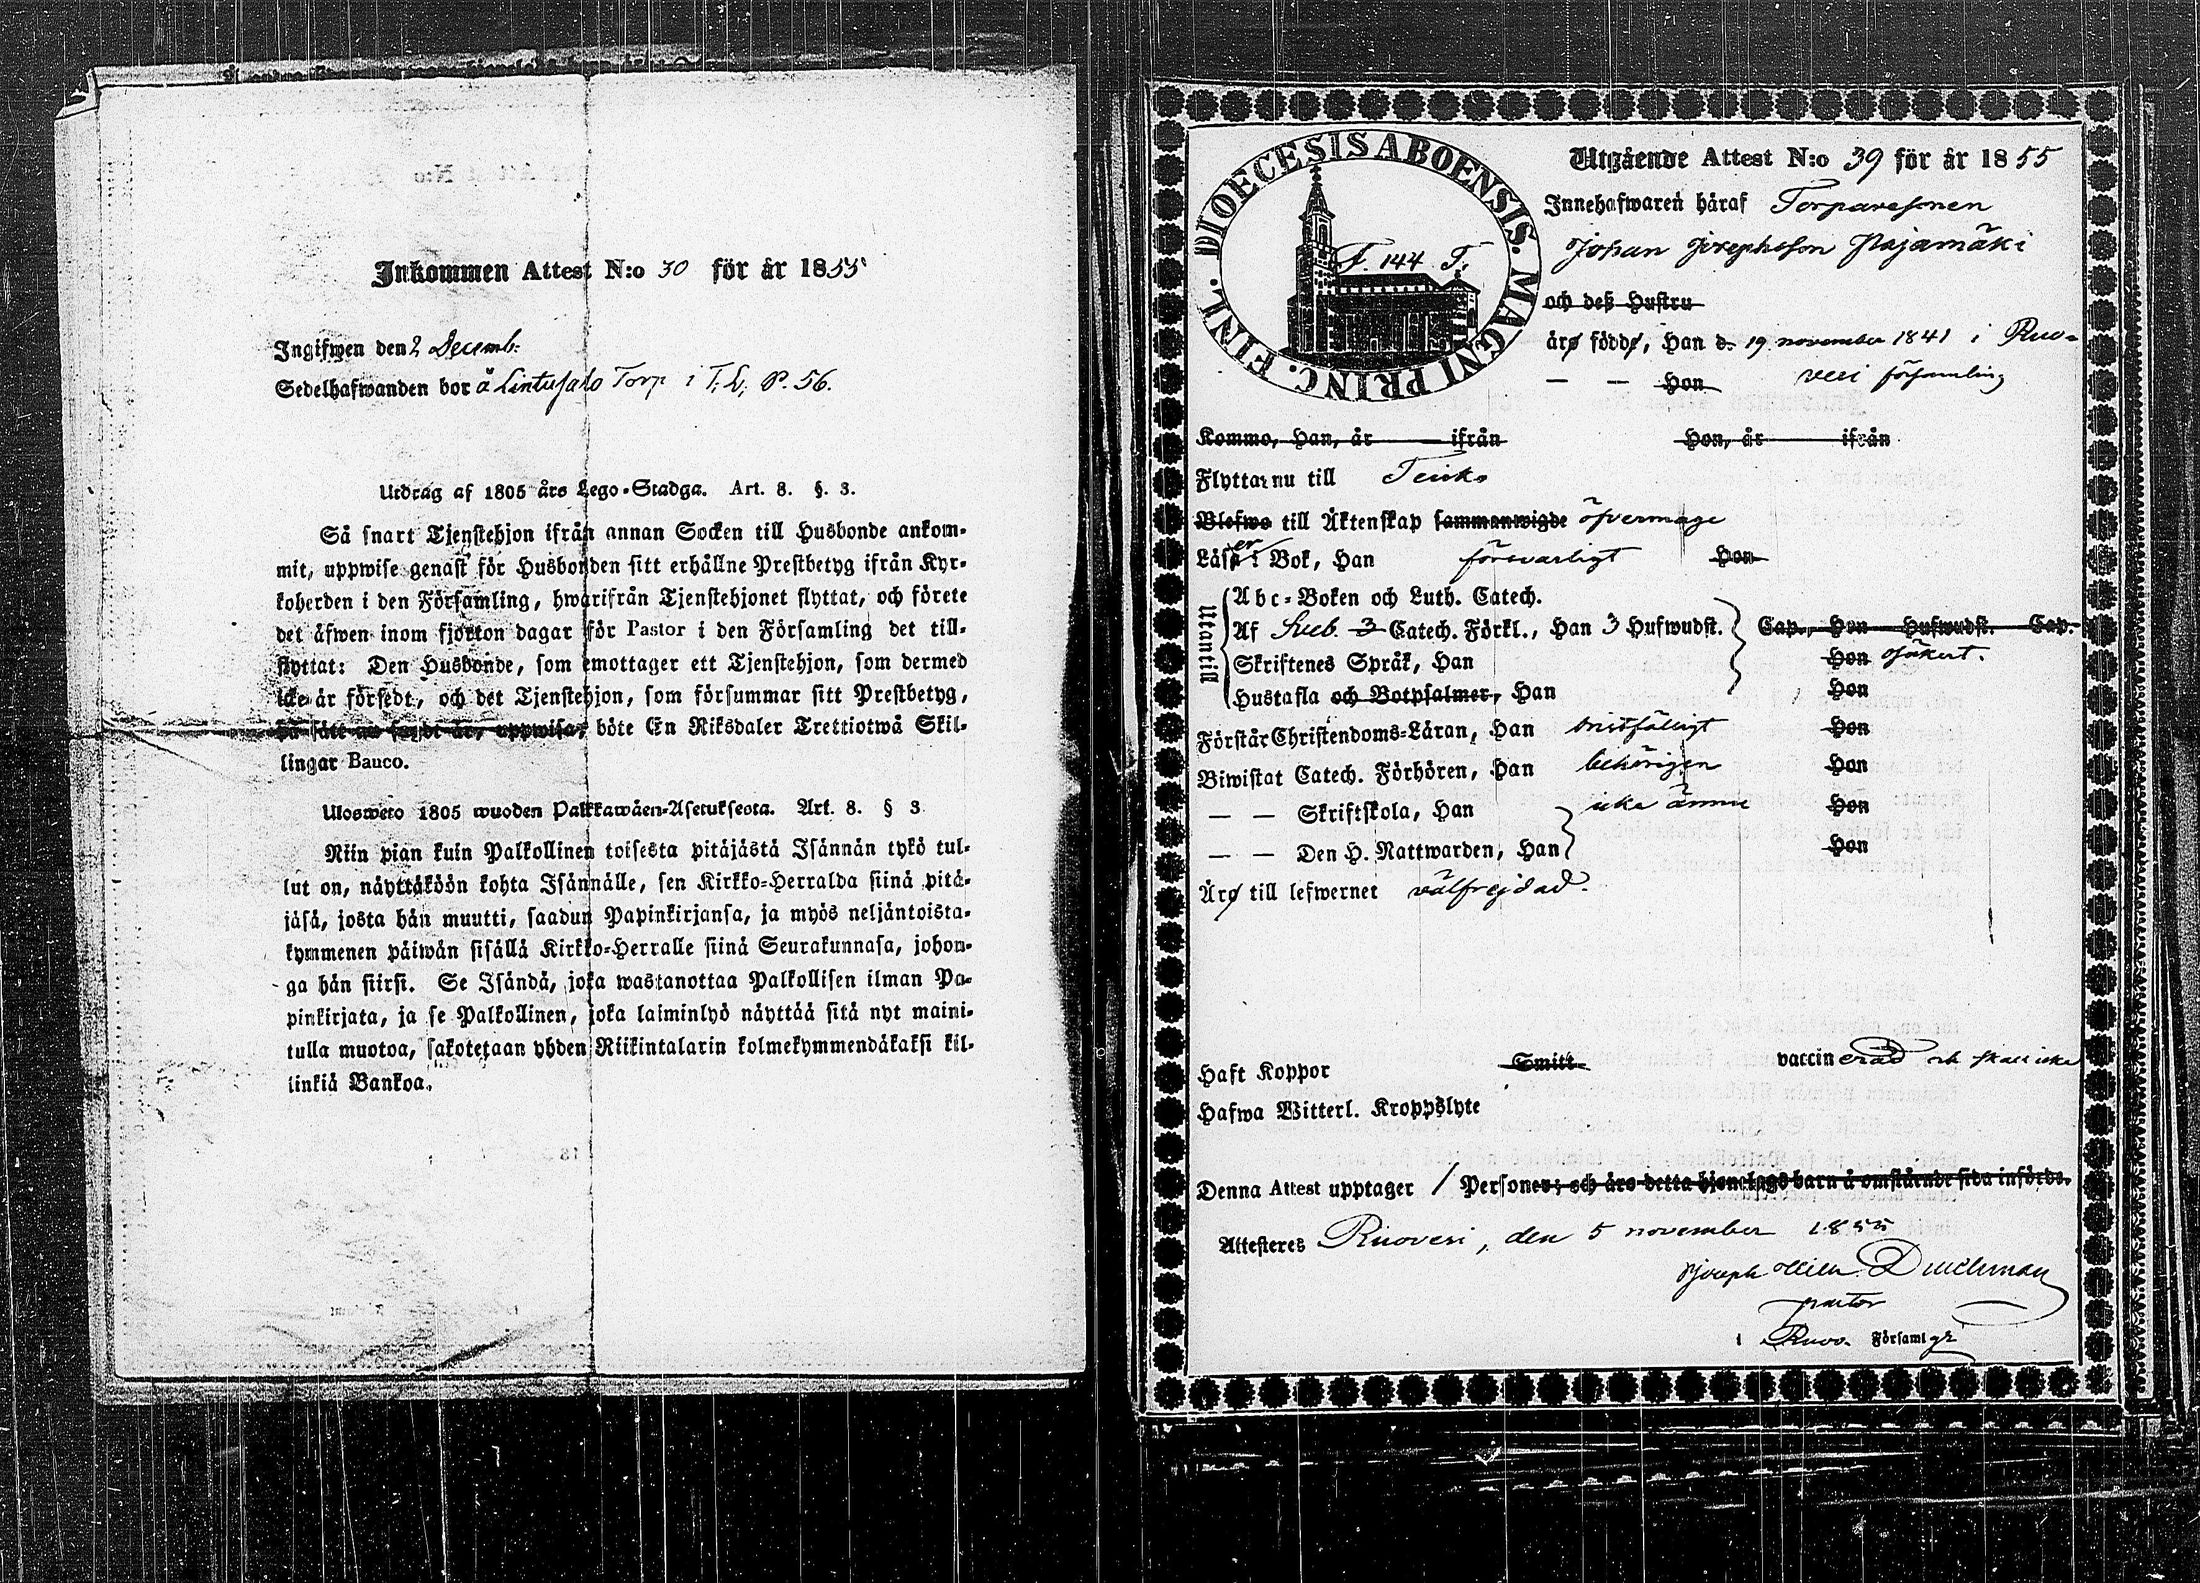 Inkommen Attest N:o 30 för år 1855
Ingifwen den 2 Decemb:
Sedelhafwanden bor å Lintusalo Torp i T. L. P. 56.
Utdrag af 1805 års Lego-Stadga. Art. 8. §. 3.
Så snart Tjenstehjon ifrån annan Socken till Husbonde ankom-
mit, uppwise genast för Husbonden sitt erhållne Prestbetyg ifrån Kyr-
koherden i den Församling, hwarifrån Tjenstehjonet flyttat, och förete
det äfwen inom fjorton dagar för Pastor i den Församling det till-
flyttat: Den Husbonde, som emottager ett Tjenstehjon, som dermed
icke är försedt, och det Tjenstehjon, som försummar sitt Prestbetyg,
på sätt nu sagdt är, uppwisa, böte En Riksdaler Trettiotwå Skil-
lingar Banco.
Ulosweto 1805 wuoden Palkkawäen-Asetuksesta. Art. 8. § 3
Niin pian kuin Palkollinen toisesta pitäjästä Isännän tykö tul-
lut on, näyttäköön kohta Isännälle, sen Kirkko-Herralda siinä pitä-
jäsä, josta hän muutti, saadun Papinkirjansa, ja myös neljäntoista-
kymmenen päiwän sisällä Kirkko-Herralle siinä Seurakunnasa, johon-
ga hän siirsi. Se Isändä, joka wastanottaa Palkollisen ilman Pa-
pinkirjata, ja se Palkollinen, joka laiminlyö näyttää sitä nyt maini-
tulla muotoa, sakotetaan yhden Riikintalarin kolmekymmendäkaksi kil-
linkiä Bankoa.
DIOECESIS ABOENSIS. MAGNI PRINC. FINL.
F. 144 T.
Utgående Attest N:o 39 för år 1855
Innehafwaren häraf Torparesonen
Johan Josephsson Pajamäki
och deß Hustru
äro födde, Han d. 19 november 1841 i Ruo-
— — Hon vesi församling
Kommo, Han, år ifrån Hon, år ifrån
Flyttar nu till Teisko
Blefwo till Äktenskap sammanwigde öfvermage
Läser i Bok, Han försvarligt Hon
Utantill
Abc-Boken och Luth. Catech.
Af Sveb. 3 Catech. Förkl., Han 3 Hufwudst. Cap., Hon Hufwudst. Cap.
Skriftenes Språk, Han Hon osäkert.
Hustafla och Botpsalmer, Han Hon
Förstår Christendoms-Läran, Han bristfälligt Hon
Biwistat Catech. Förhören, Han behörigen Hon
— — Skriftskola, Han icke ännu Hon
— — Den H. Nattwarden, Han Hon
Äro till lefwernet välfrejdad.
Haft Koppor Smitt vaccinerad och skall icke
Hafwa Witterl. Kroppslyte
Denna Attest upptager 1 Personer; och äro detta hjonelags barn å omstående sida införde.
Attesteras Ruovesi, den 5 november 1855
Joseph Wilh.
pastor
i Ruov. Församlg